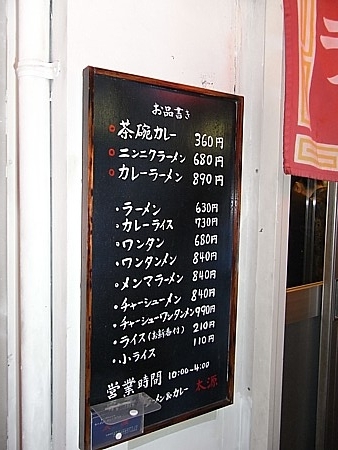 お品書き
茶碗カレー 360円
ニンニクラーメン 680円
カレーラーメン 890円
・ラーメン 630円
・カレーライス 730円
・ワンタン 680円
・ワンタンメン 840円
・メンマラーメン 840円
・チャーシューメン 840円
・チャーシューワンタンメン 990円
・ライス(お新香付) 210円
・小ライス 110円
営業時間 10:00~4:00
ーメン&カレー 太源